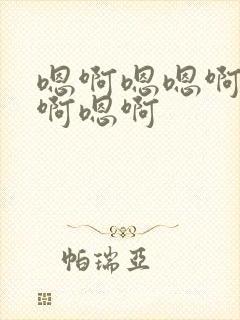 嗯啊嗯嗯啊
啊嗯啊
帕瑞亞